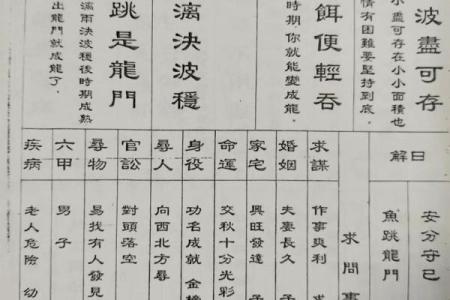 波盡可存
小盡可存在小小面積也
情有困難要堅持到底。
餌便輕吞
時期你就能變成龍。
漓決波穩
跳是龍門
漓雨決波穩後時期成熟
出龍門就成龍了。
日解
安分守己
魚跳龍門
求問事
求謀 作事爽利 求
婚姻 夫妻長久
家宅 興旺發達
命運 交秋十分光彩
身役 功名成就 金榜
尋人 向西北方尋
官訟 對頭落空
尋物 易找有人發見
六甲 男子
疾病 老人危險 幼